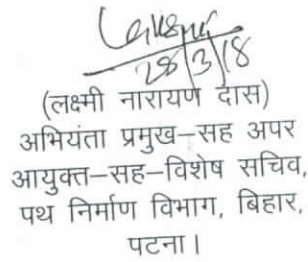 28/3/18
(लक्ष्मी नारायण दास)
अभियंता प्रमुख–सह अपर
आयुक्त–सह–विशेष सचिव,
पथ निर्माण विभाग, बिहार,
पटना।